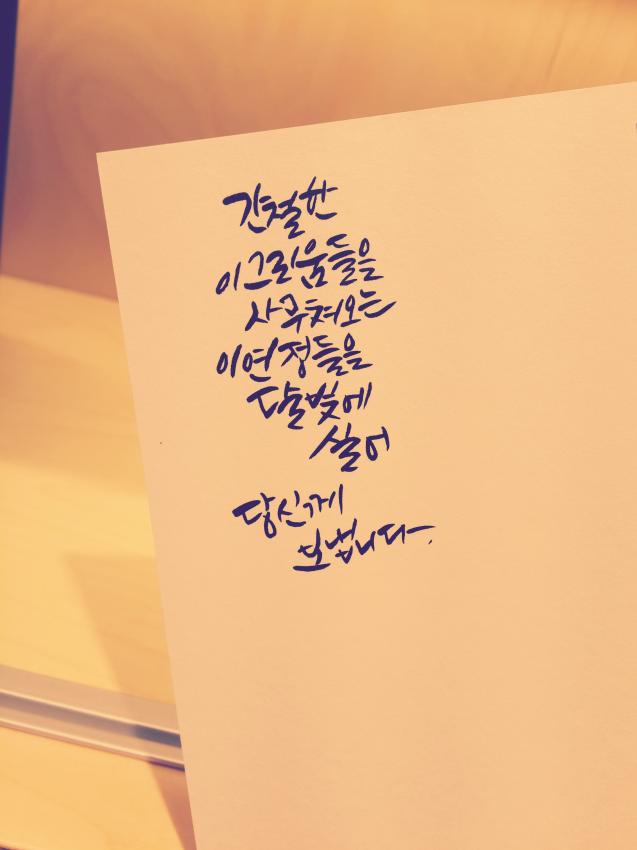 간절한
이 그리움들을
사무쳐오는
이 연정들을
달빛에
실어
당신께
보냅니다.